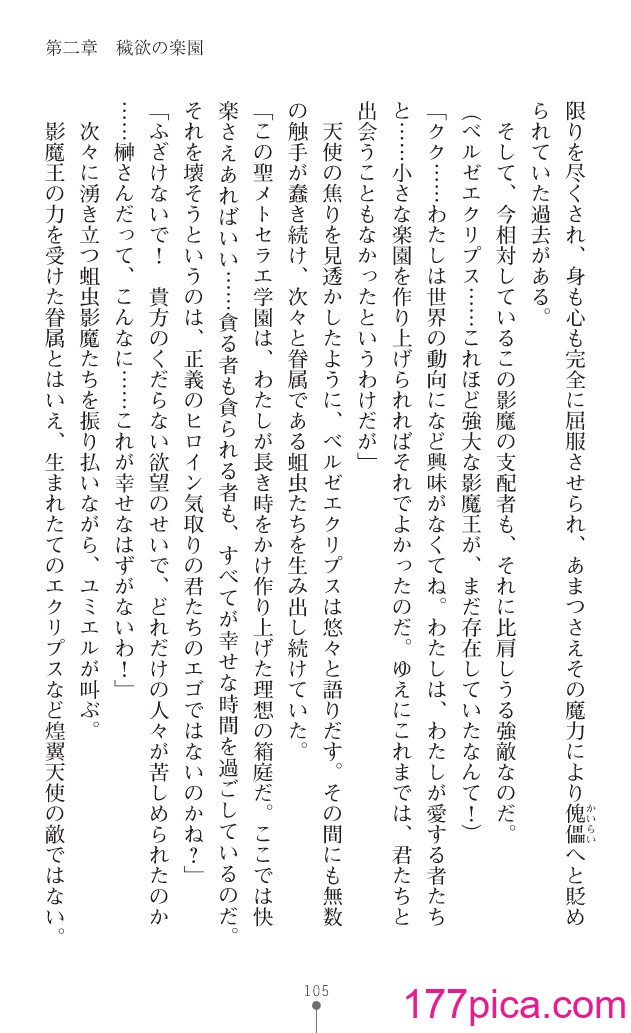 第二章　穢欲の楽園
限りを尽くされ、身も心も完全に屈服させられ、あまつさえその魔力により傀儡へと貶め
かいらい
られていた過去がある。
そして、今相対しているこの影魔の支配者も、それに比肩しうる強敵なのだ。
（ベルゼエクリプス……これほど強大な影魔王が、まだ存在していたなんて！）
「クク……わたしは世界の動向になど興味がなくてね。わたしは、わたしが愛する者たち
と……小さな楽園を作り上げられればそれでよかったのだ。ゆえにこれまでは、君たちと
出会うこともなかったというわけだが」
天使の焦りを見透かしたように、ベルゼエクリプスは悠々と語りだす。その間にも無数
の触手が蠢き続け、次々と眷属である蛆虫たちを生み出し続けていた。
「この聖メトセラエ学園は、わたしが長き時をかけ作り上げた理想の箱庭だ。ここでは快
楽さえあればいい……貪る者も貪られる者も、すべてが幸せな時間を過ごしているのだ。
それを壊そうというのは、正義のヒロイン気取りの君たちのエゴではないのかね？」
「ふざけないで！　貴方のくだらない欲望のせいで、どれだけの人々が苦しめられたのか
……榊さんだって、こんなに……これが幸せなはずがないわ！」
次々に湧き立つ蛆虫影魔たちを振り払いながら、ユミエルが叫ぶ。
影魔王の力を受けた眷属とはいえ、生まれたてのエクリプスなど煌翼天使の敵ではない。
105
177pica.com